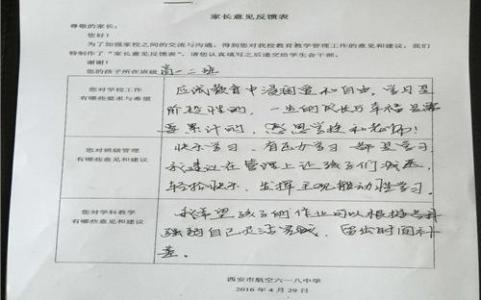 家长意见反馈表
尊敬的家长：
您好！
为了加强家校之间的交流与沟通，得到您对我校教育教学管理工作的意见和建议，我们
特制作了“家长意见反馈表”，请您认真填写之后递交给学生会干部。
谢谢！
您的孩子所在班级 高一二班
您对学校工作
有哪些要求与希望
应试教育中 和自由，学习是
阶段性的，一生的成长与幸福是需
要累计的，感恩学校和老师！
您对班级管理
有哪些意见和建议
快乐学习、有压力学习都是学习
我建议在管理上让孩子们减压，
轻松快乐，发挥主观能动性学习。
您对学科教学
有哪些意见和建议
我希望孩子的作业可以根据
强弱自己 ，留出时间补
差。
西安市航空六一八中学
2016 年 4 月 29 日